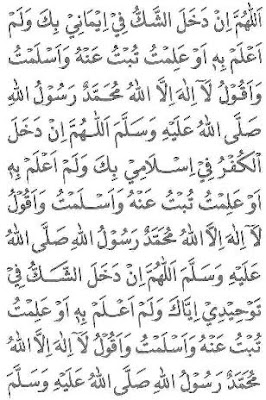 اَللّٰهُمَّ اِنْ دَخَلَ الشَّكُّ فِيْ اِيْمَانِيْ بِكَ وَلَمْ
اَعْلَمْ بِهٖ اَوْ عَلِمْتُ تُبْتُ عَنْهُ وَاَسْلَمْتُ
وَاَقُوْلُ لَآ اِلٰهَ اِلَّا اللهُ مُحَمَّدٌ رَسُوْلُ اللهِ
صَلَّى اللهُ عَلَيْهِ وَسَلَّمَ اَللّٰهُمَّ اِنْ دَخَلَ
الْكُفْرُ فِيْ اِسْلَامِيْ بِكَ وَلَمْ اَعْلَمْ بِهٖ
اَوْ عَلِمْتُ تُبْتُ عَنْهُ وَاَسْلَمْتُ وَاَقُوْلُ
لَآ اِلٰهَ اِلَّا اللهُ مُحَمَّدٌ رَسُوْلُ اللهِ صَلَّى اللهُ
عَلَيْهِ وَسَلَّمَ اَللّٰهُمَّ اِنْ دَخَلَ الشَّكُّ فِيْ
تَوْحِيْدِيْ اِيَّاكَ وَلَمْ اَعْلَمْ بِهٖ اَوْ عَلِمْتُ
تُبْتُ عَنْهُ وَاَسْلَمْتُ وَاَقُوْلُ لَآ اِلٰهَ اِلَّا اللهُ
مُحَمَّدٌ رَسُوْلُ اللهِ صَلَّى اللهُ عَلَيْهِ وَسَلَّمَ